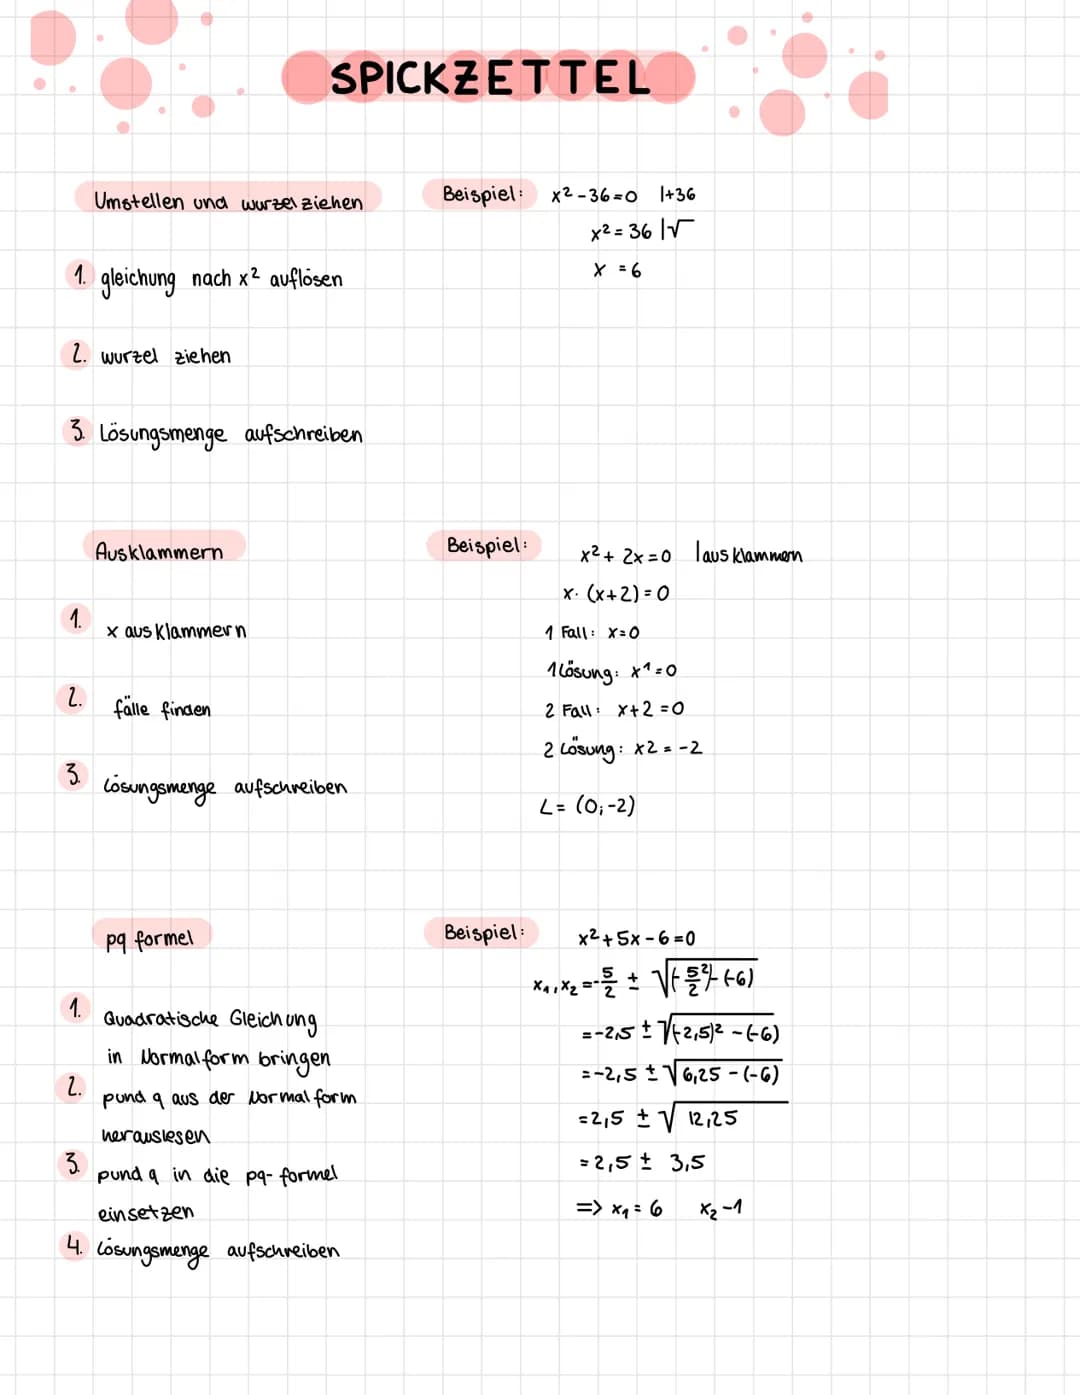 SPICKZETTEL
Umstellen und wurzel ziehen
1. gleichung nach x² auflösen
2. wurzel ziehen
3. Lösungsmenge aufschreiben
Beispiel: x² - 36 = 0 |+36
x² = 36 |√
x = 6
Ausklammern
1. x ausklammern
2. fälle finden
3. Lösungsmenge aufschreiben
Beispiel: x² + 2x = 0 |ausklammern
x · (x+2) = 0
1 Fall: x = 0
1 Lösung: x¹ = 0
2 Fall: x+2 = 0
2 Lösung: x2 = -2
L = (0; -2)
pq formel
1. Quadratische Gleichung
in Normalform bringen
2. p und q aus der Normalform
herauslesen
3. p und q in die pq-formel
einsetzen
4. Lösungsmenge aufschreiben
Beispiel: x² + 5x - 6 = 0
x₁, x₂ = -5/2 ± √(-5/2)² - (-6)
= -2,5 ± √(-2,5)² - (-6)
= -2,5 ± √6,25 - (-6)
= 2,5 ± √12,25
= 2,5 ± 3,5
=> x₁ = 6 x₂ -1